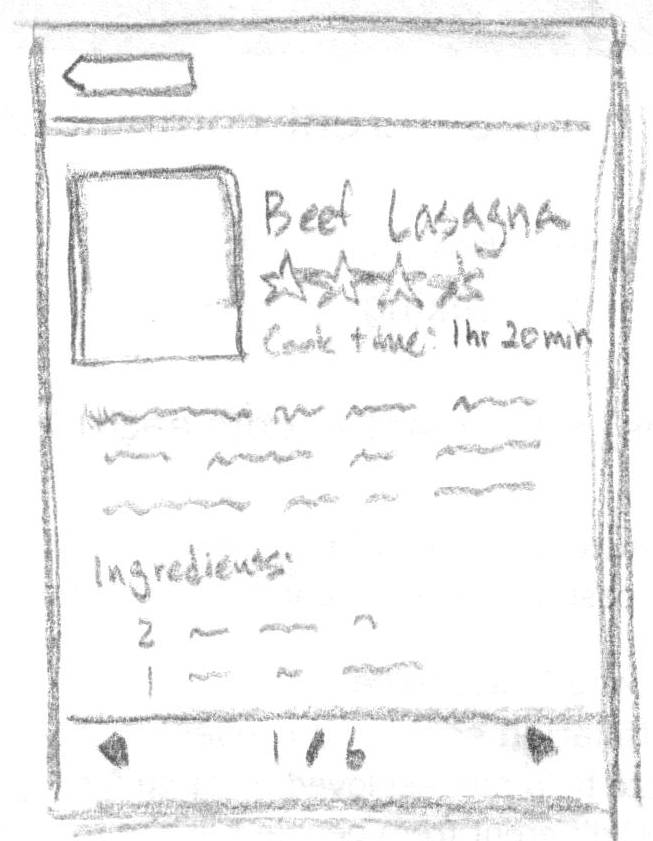 Beef Lasagna
Cook time: 1hr 20min
Ingredients:
2
1
1 / 6